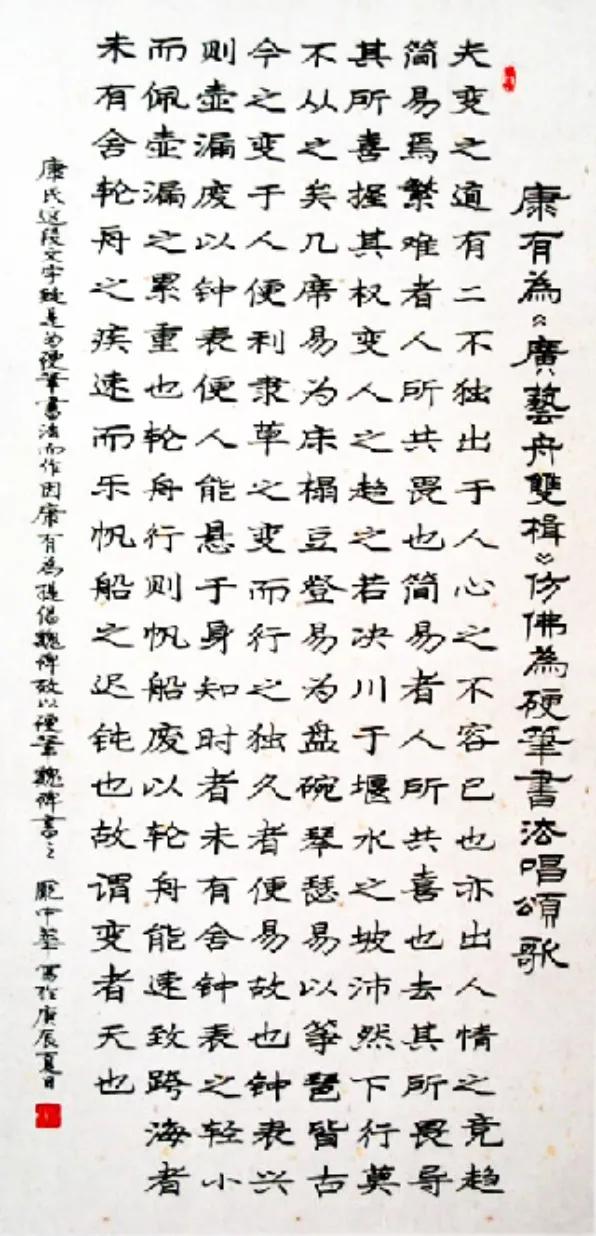 康有為《廣藝舟雙楫》仿佛為硬筆書法唱頌歌
夫变之道有二不独出于人心之不容已也亦出人情之竞趋
简易焉繁难者人所共畏也简易者人所共喜也去其所畏导
其所喜握其权变人之趋之若决川于堰水之坡沛然下行莫
不从之矣几席易为床榻豆登易为盘碗琴瑟易以筝琶皆古
今之变于人便利隶草之变而行之独久者便易故也钟表兴
则壶漏废以钟表便人能悬于身知时者未有舍钟表之轻小
而佩壶漏之累重也轮舟行则帆船废以轮舟能速致跨海者
未有舍轮舟之疾速而乐帆船之迟钝也故谓变者天也
康氏这段文字疑是为硬筆書法而作因康有為提倡魏碑故以硬筆魏碑書之 龐中華寫於庚辰夏日